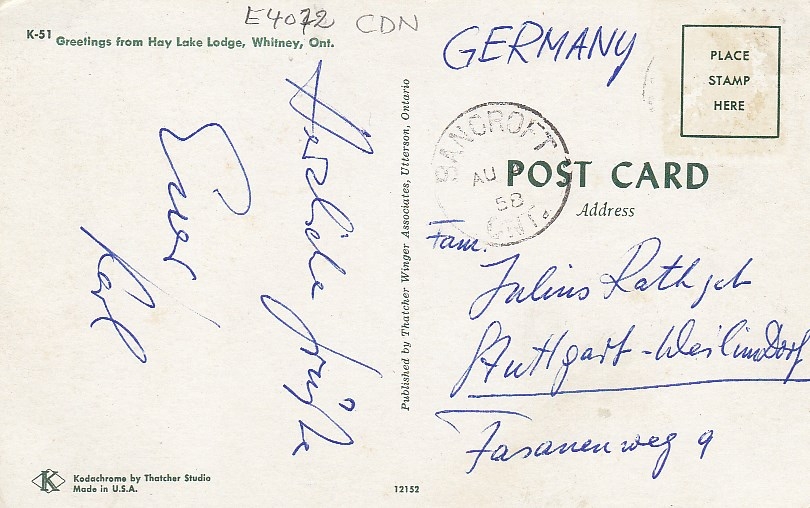 E4072 CDN
K-51 Greetings from Hay Lake Lodge, Whitney, Ont.
Herzliche Grüße
Euer
Karl
Kodachrome by Thatcher Studio
Made in U.S.A.
12152
Published by Thatcher Winger Associates, Utterson, Ontario
GERMANY
PLACE
STAMP
HERE
BANCROFT
AU
58
ONT.
POST CARD
Address
Fam.
Julius Rathgeb
Stuttgart-Weilimdorf
Fasanenweg 9